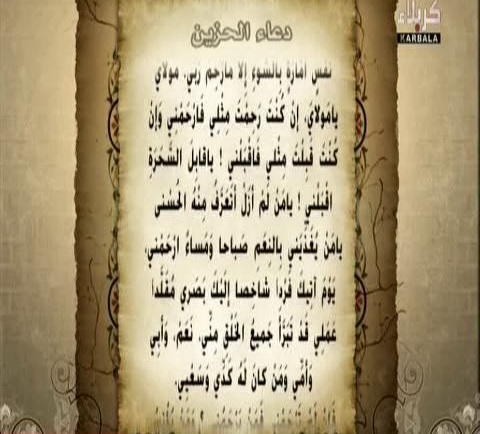 كربلاء
KARBALA
دعاء الحزين
نفس أمارة بالسوء إلا مارحم ربي، مولاي
يامولاي، إن كُنْتَ رَحِمْتَ مِثْلي فَارْحَمْني وَإنْ
كُنْتَ قَبِلْتَ مِثْلي فَاقْبَلْني ! ياقابِلَ السَّحَرَةِ
اقْبَلْني ! يامَنْ لَمْ أزَلْ أتَعَرَّفُ مِنْهُ الحُسْنى
يامَنْ يُغَذِّيَني بِالنِّعَمِ صَباحا وَمَساءً ارْحَمْني،
يَوْمَ آتيكَ فَرْداً شاخِصا إلَيْكَ بَصَري مُقَلَّداً
عَمَلي قَدْ تَبَرَّأَ جَميعُ الخَلْقِ مِنّي، نَعَمْ، وَأبي
وَأُمّي وَمَنْ كانَ لَهُ كَدّي وَسَعْيي،